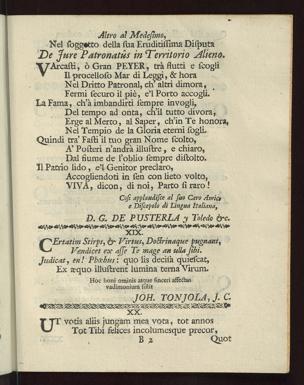 Altro al Medesimo,
Nel soggetto della sua Eruditissima Disputa
De Jure Patronatûs in Territorio Alieno.
VArcasti, ò Gran PEYER, trà flutti e scogli
Il procelloso Mar di Leggi, & hora
Nel Dritto Patronal, ch' altri dimora,
Fermi securo il piè, e'l Porto accogli.
La Fama, ch'à imbandirti sempre invogli,
Del tempo ad onta, ch'il tutto divora,
Erge al Merto, al Saper, ch'in Te honora,
Nel Tempio de la Gloria eterni sogli.
Quindi tra' Fasti il tuo gran Nome scolto,
A' Posteri n'andrà illustre, e chiaro,
Dal fiume de l'oblio sempre distolto.
Il Patrio lido, e'l Genitor preclaro,
Accogliendoti in sen con lieto volto,
VIVA, dicon, di noi, Parto sì raro!
Così applaudisce al suo Caro Amico
e Discepolo di Lingua Italiana,
D. G. DE PUSTERLA y Toledo &c.
XIX.
CErtatim Stirps, & Virtus, Doctrinaque pugnant,
Vendicet ex asse Te mage an ulla sibi.
Judicat, en! Phœbus: quo lis decisa quiescat,
Ex æquo illustrent lumina terna Virum.
Hoc boni ominis atque sinceri affectus
vadimonium sistit
JOH. TONJOLA, J. C.
XX.
UT votis aliis jungam mea vota, tot annos
Tot Tibi felices incolumesque precor,
B 2 Quot